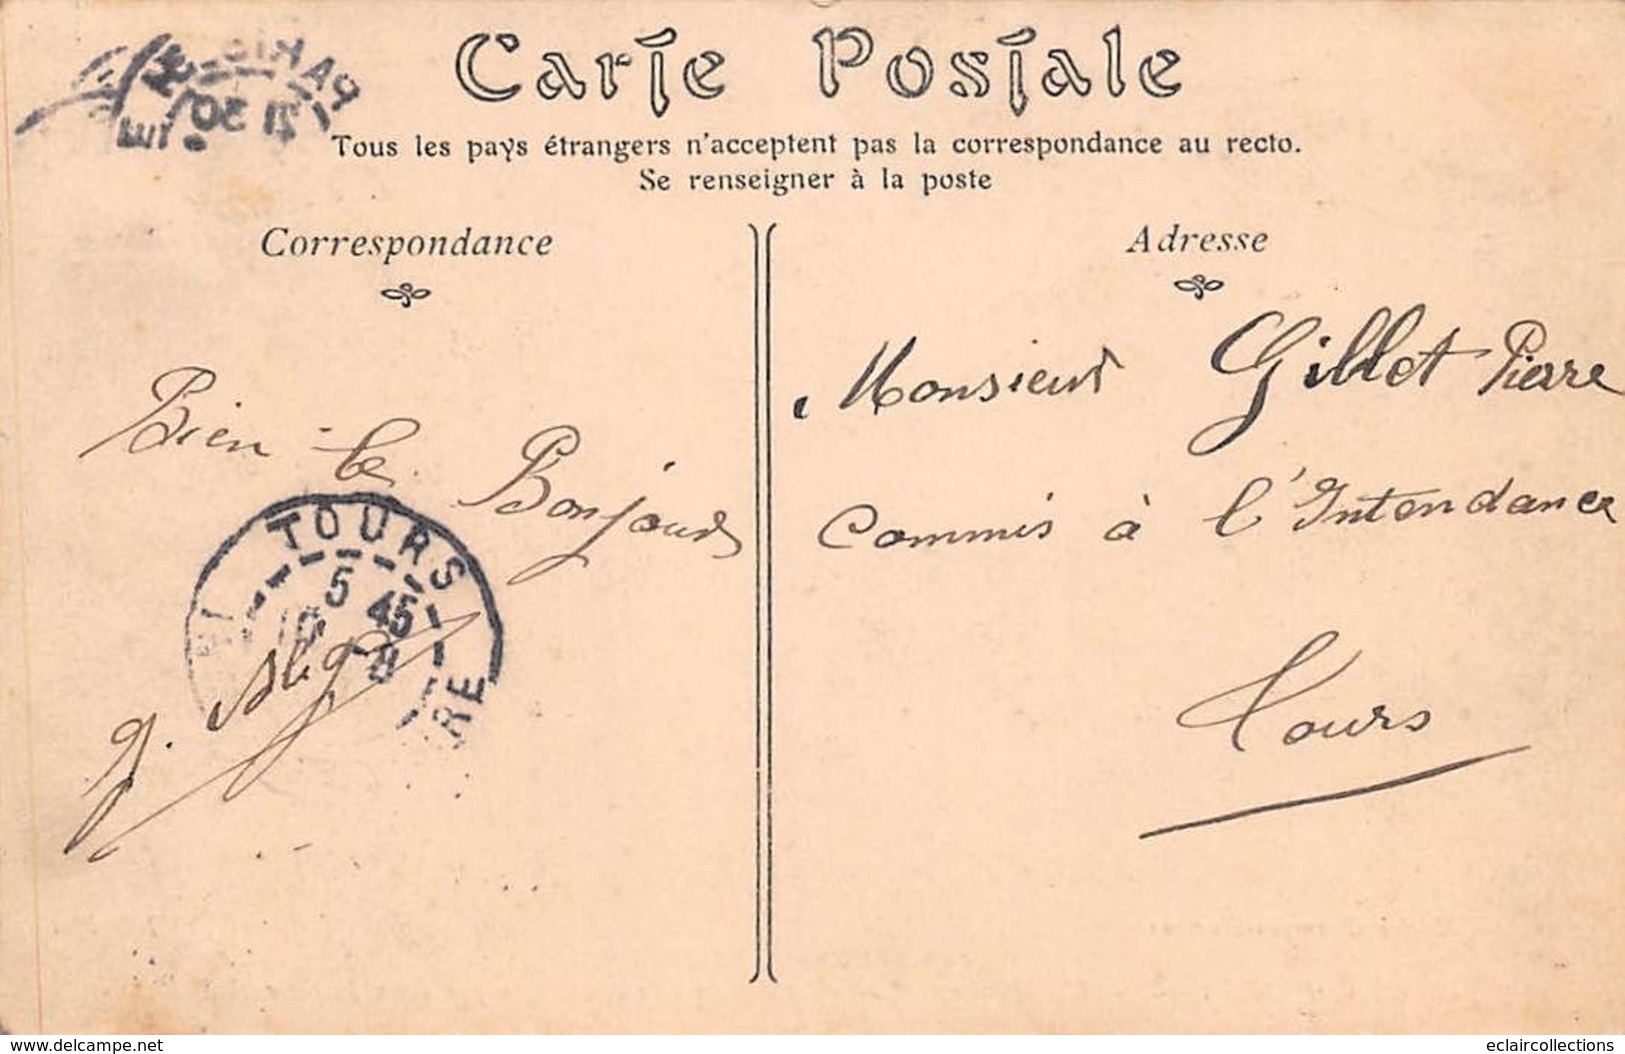 Carte Postale
Tous les pays étrangers n'acceptent pas la correspondance au recto.
Se renseigner à la poste
Correspondance
Adresse
Bien le Bonjour
Monsieur Gillet Pierre
Commis à l'Intendance
Tours
TOURS
5 45
PARIS
www.delcampe.net
eclaircollections